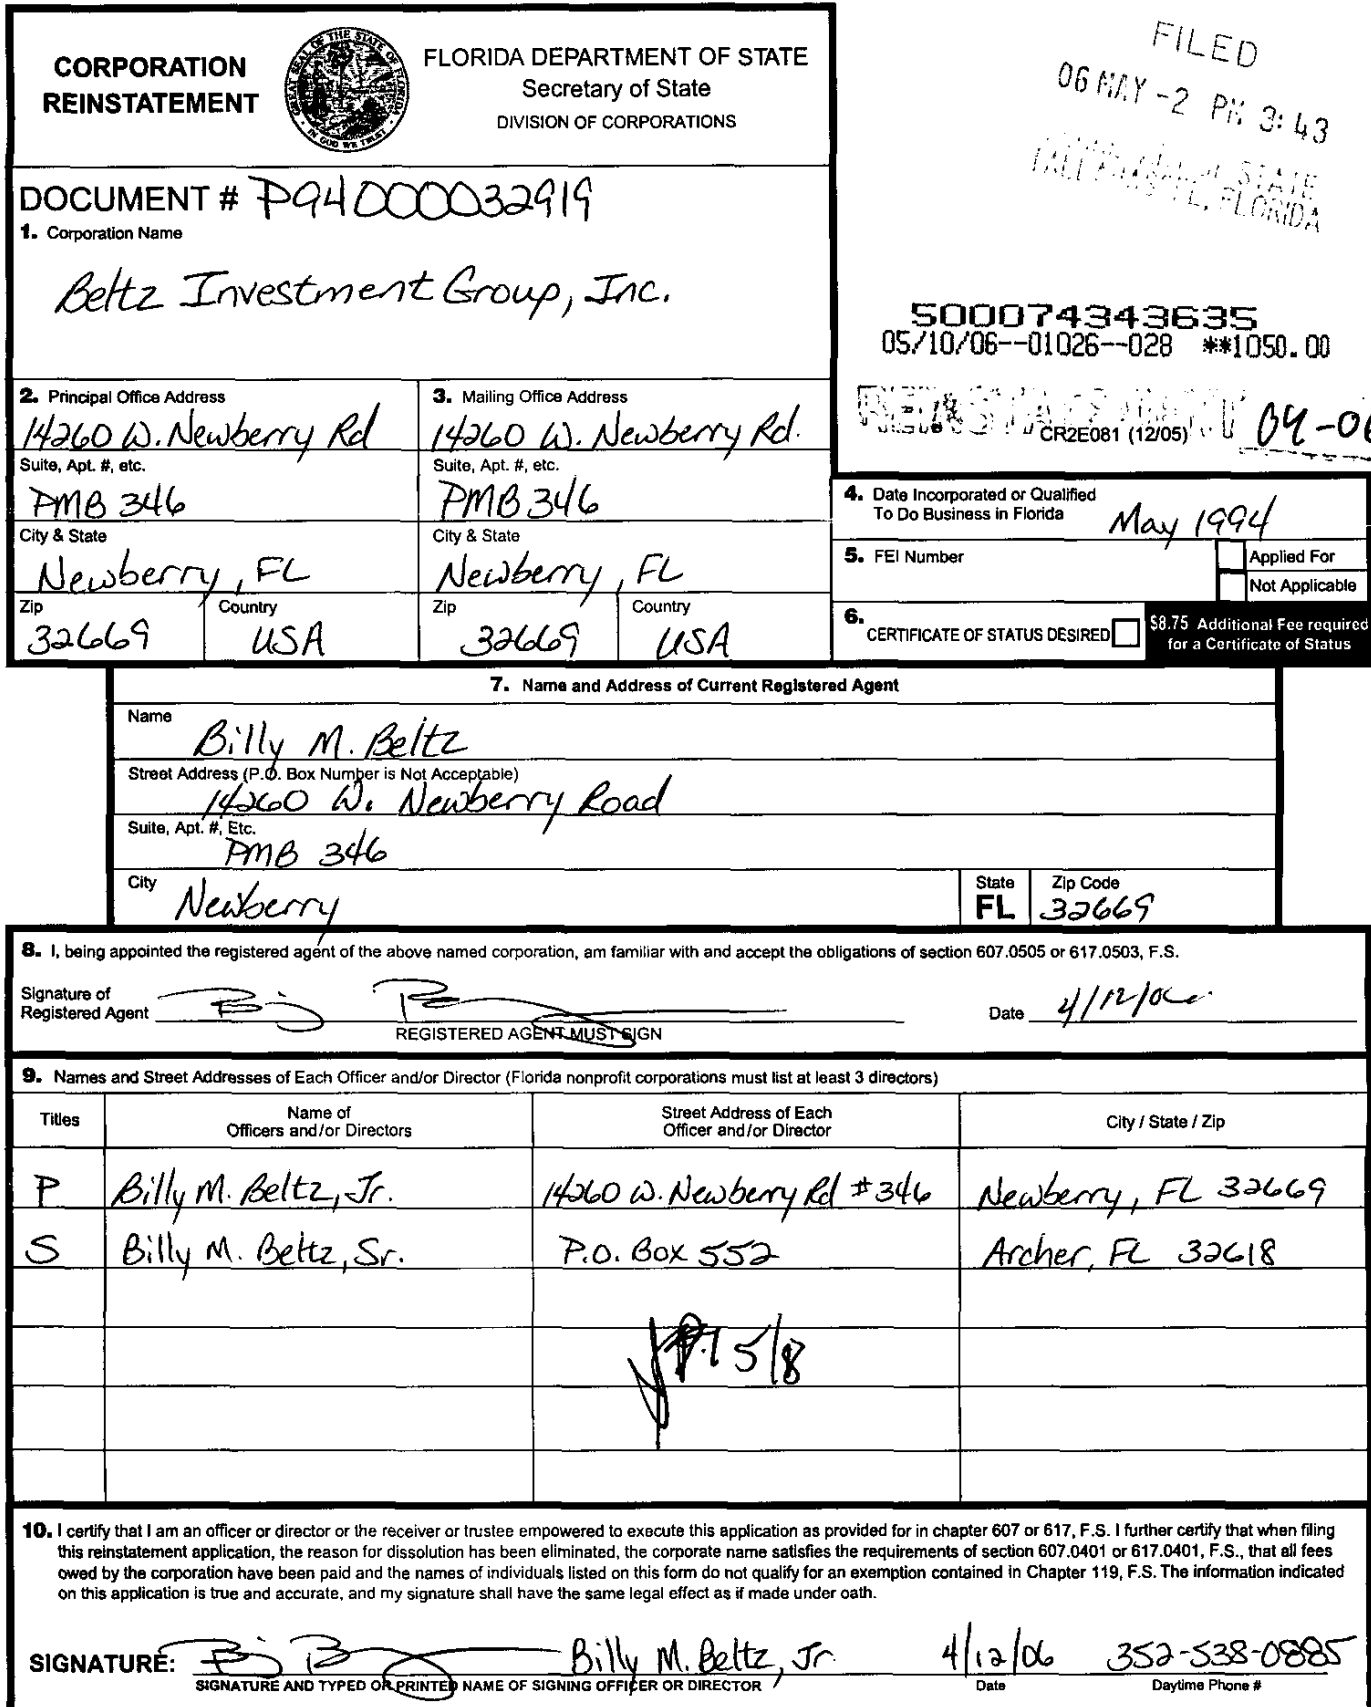 CORPORATION
REINSTATEMENT
GREAT SEAL OF THE STATE OF FLORIDA
IN GOD WE TRUST
FLORIDA DEPARTMENT OF STATE
Secretary of State
DIVISION OF CORPORATIONS
FILED
06 MAY -2 PM 3:43
STATE
FLORIDA
DOCUMENT # P94000032919
1. Corporation Name
Beltz Investment Group, Inc.
500074343635
05/10/06--01026--028 **1050.00
REINSTATEMENT 04-06
CR2E081 (12/05)
2. Principal Office Address
14260 W. Newberry Rd
Suite, Apt. #, etc.
PMB 346
City & State
Newberry, FL
Zip
32669
Country
USA
3. Mailing Office Address
14260 W. Newberry Rd.
Suite, Apt. #, etc.
PMB 346
City & State
Newberry, FL
Zip
32669
Country
USA
4. Date Incorporated or Qualified
To Do Business in Florida
May 1994
5. FEI Number
Applied For
Not Applicable
6.
CERTIFICATE OF STATUS DESIRED
$8.75 Additional Fee required
for a Certificate of Status
7. Name and Address of Current Registered Agent
Name
Billy M. Beltz
Street Address (P.O. Box Number is Not Acceptable)
14260 W. Newberry Road
Suite, Apt. #, Etc.
PMB 346
City
Newberry
State
FL
Zip Code
32669
8. I, being appointed the registered agent of the above named corporation, am familiar with and accept the obligations of section 607.0505 or 617.0503, F.S.
Signature of
Registered Agent
REGISTERED AGENT MUST SIGN
Date 4/12/06
9. Names and Street Addresses of Each Officer and/or Director (Florida nonprofit corporations must list at least 3 directors)
Titles
Name of
Officers and/or Directors
Street Address of Each
Officer and/or Director
City / State / Zip
P Billy M. Beltz, Jr. 14260 W. Newberry Rd #346 Newberry, FL 32669
S Billy M. Beltz, Sr. P.O. Box 552 Archer, FL 32618
5/8
10. I certify that I am an officer or director or the receiver or trustee empowered to execute this application as provided for in chapter 607 or 617, F.S. I further certify that when filing
this reinstatement application, the reason for dissolution has been eliminated, the corporate name satisfies the requirements of section 607.0401 or 617.0401, F.S., that all fees
owed by the corporation have been paid and the names of individuals listed on this form do not qualify for an exemption contained in Chapter 119, F.S. The information indicated
on this application is true and accurate, and my signature shall have the same legal effect as if made under oath.
SIGNATURE: Billy M. Beltz, Jr. 4/12/06 352-538-0885
SIGNATURE AND TYPED OR PRINTED NAME OF SIGNING OFFICER OR DIRECTOR
Date
Daytime Phone #